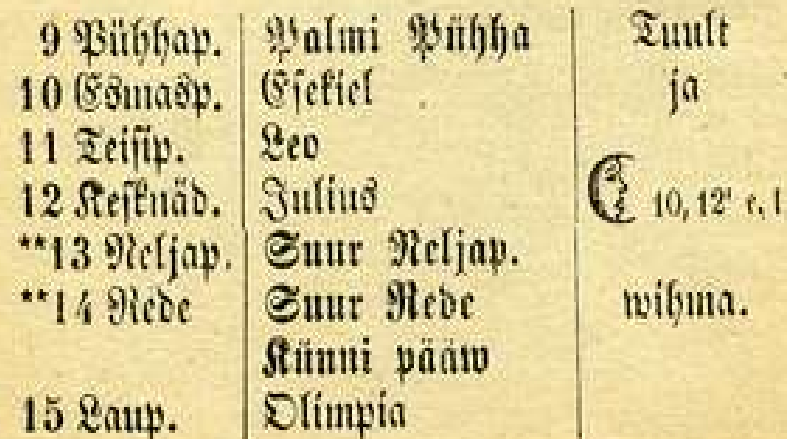 9 Pühhap. Palmi Pühha Tuult
10 Esmasp. Esekiel ja
11 Teisip. Leo
12 Kesknäd. Julius 10, 12' e, l
**13 Neljap. Suur Neljap.
**14 Rede Suur Rede wihma.
Künni pääw
15 Laup. Olimpia